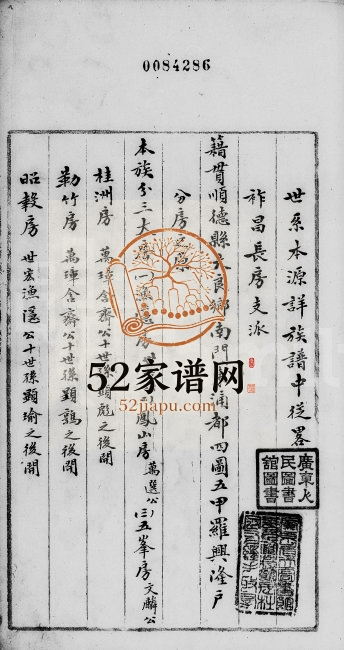 0084286
世系本源詳族譜中從畧
祚昌長房支派
籍貫順德縣大良鄉南門 涌都四圖五甲羅興隆戶
分房之原
本族分三大房 鳳山房萬選公 (三)五峯房文麟公
桂洲房 萬璋含齋公十世孫顯彪之後開
勒竹房 萬璋含齋公十世孫顯鶚之後開
昭穀房 世宏漁隱公十世孫顯瑜之後開
52家谱网
52jiapu.com
廣東人民圖書館圖書